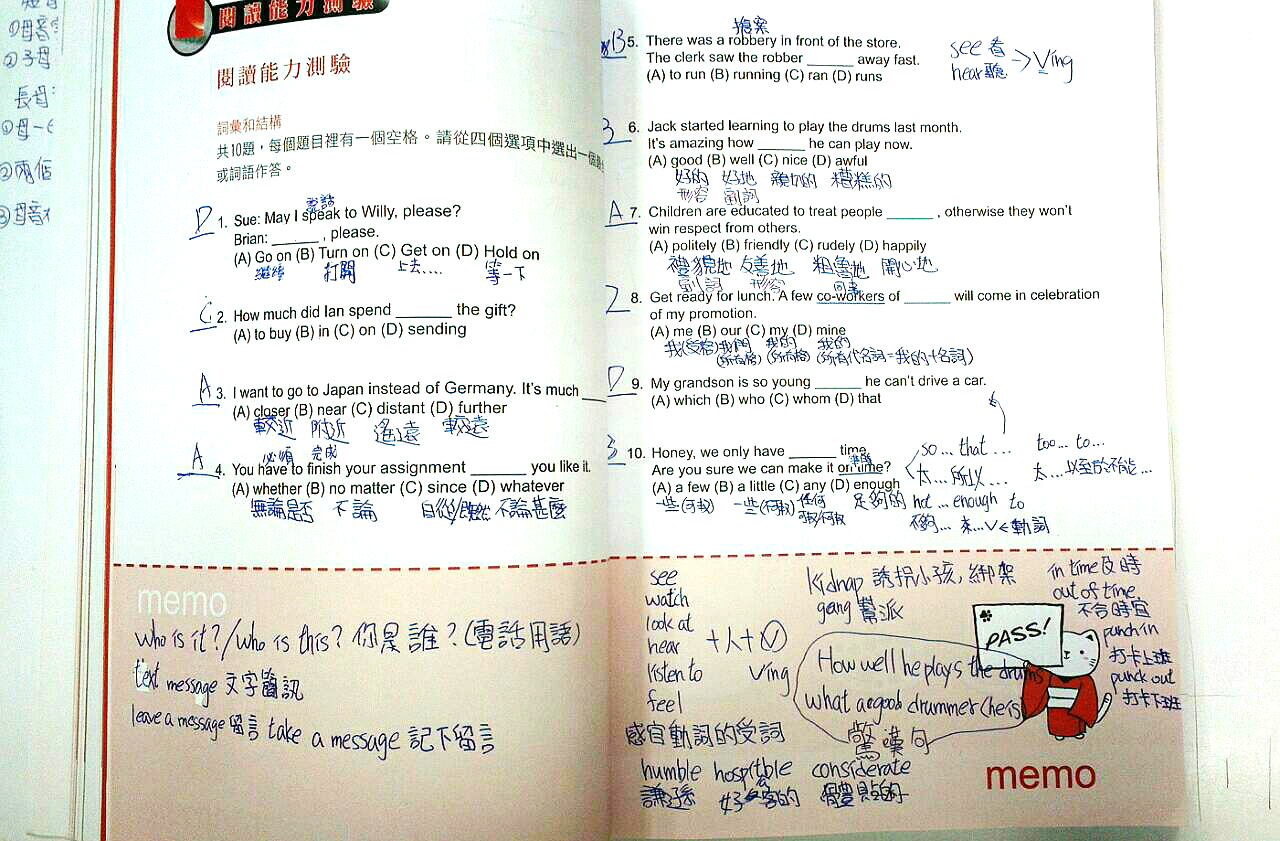 閱讀能力測驗
閱讀能力測驗
詞彙和結構
共10題，每個題目裡有一個空格。請從四個選項中選出一個
或詞語作答。
說話
D 1. Sue: May I speak to Willy, please?
Brian: ______ , please.
(A) Go on (B) Turn on (C) Get on (D) Hold on
繼續 打開 上去.... 等一下
C 2. How much did Ian spend ______ the gift?
(A) to buy (B) in (C) on (D) sending
A 3. I want to go to Japan instead of Germany. It's much ___
(A) closer (B) near (C) distant (D) further
較近 附近 遙遠 較遠
必須 完成
A 4. You have to finish your assignment ______ you like it.
(A) whether (B) no matter (C) since (D) whatever
無論是否 不論 自從/既然 不論甚麼
memo
who is it?/who is this? 你是誰？(電話用語)
text message 文字簡訊
leave a message 留言 take a message 記下留言
搶案
B 5. There was a robbery in front of the store.
The clerk saw the robber ______ away fast.
(A) to run (B) running (C) ran (D) runs
see 看
hear 聽 -> Ving
B 6. Jack started learning to play the drums last month.
It's amazing how ______ he can play now.
(A) good (B) well (C) nice (D) awful
好的 好地 親切的 糟糕的
形容 副詞
A 7. Children are educated to treat people ______ , otherwise they won't
win respect from others.
(A) politely (B) friendly (C) rudely (D) happily
禮貌地 友善地 粗魯地 開心地
副詞 形容 同事
8. Get ready for lunch. A few co-workers of ______ will come in celebration
of my promotion.
(A) me (B) our (C) my (D) mine
我(受格) 我們 我的 我的
(所有格) (所有格) (所有代名詞=我的+名詞)
D 9. My grandson is so young ______ he can't drive a car.
(A) which (B) who (C) whom (D) that
so... that... too... to...
太...所以... 太...以至於不能...
B 10. Honey, we only have ______ time.
準時
Are you sure we can make it on time?
(A) a few (B) a little (C) any (D) enough
一些(可數) 一些(不可數) 任何 足夠的 not... enough to
可數/不可數 不夠... 來...V←動詞
see
watch
look at
hear
listen to
feel
+人+V
Ving
感官動詞的受詞
humble hospitable considerate
謙遜 好客的 體貼的
kidnap 誘拐小孩,綁架
gang 幫派
PASS!
How well he plays the drums
what a good drummer (he is)
驚嘆句
in time 及時
out of time
不合時宜
punch in
打卡上班
punch out
打卡下班
memo